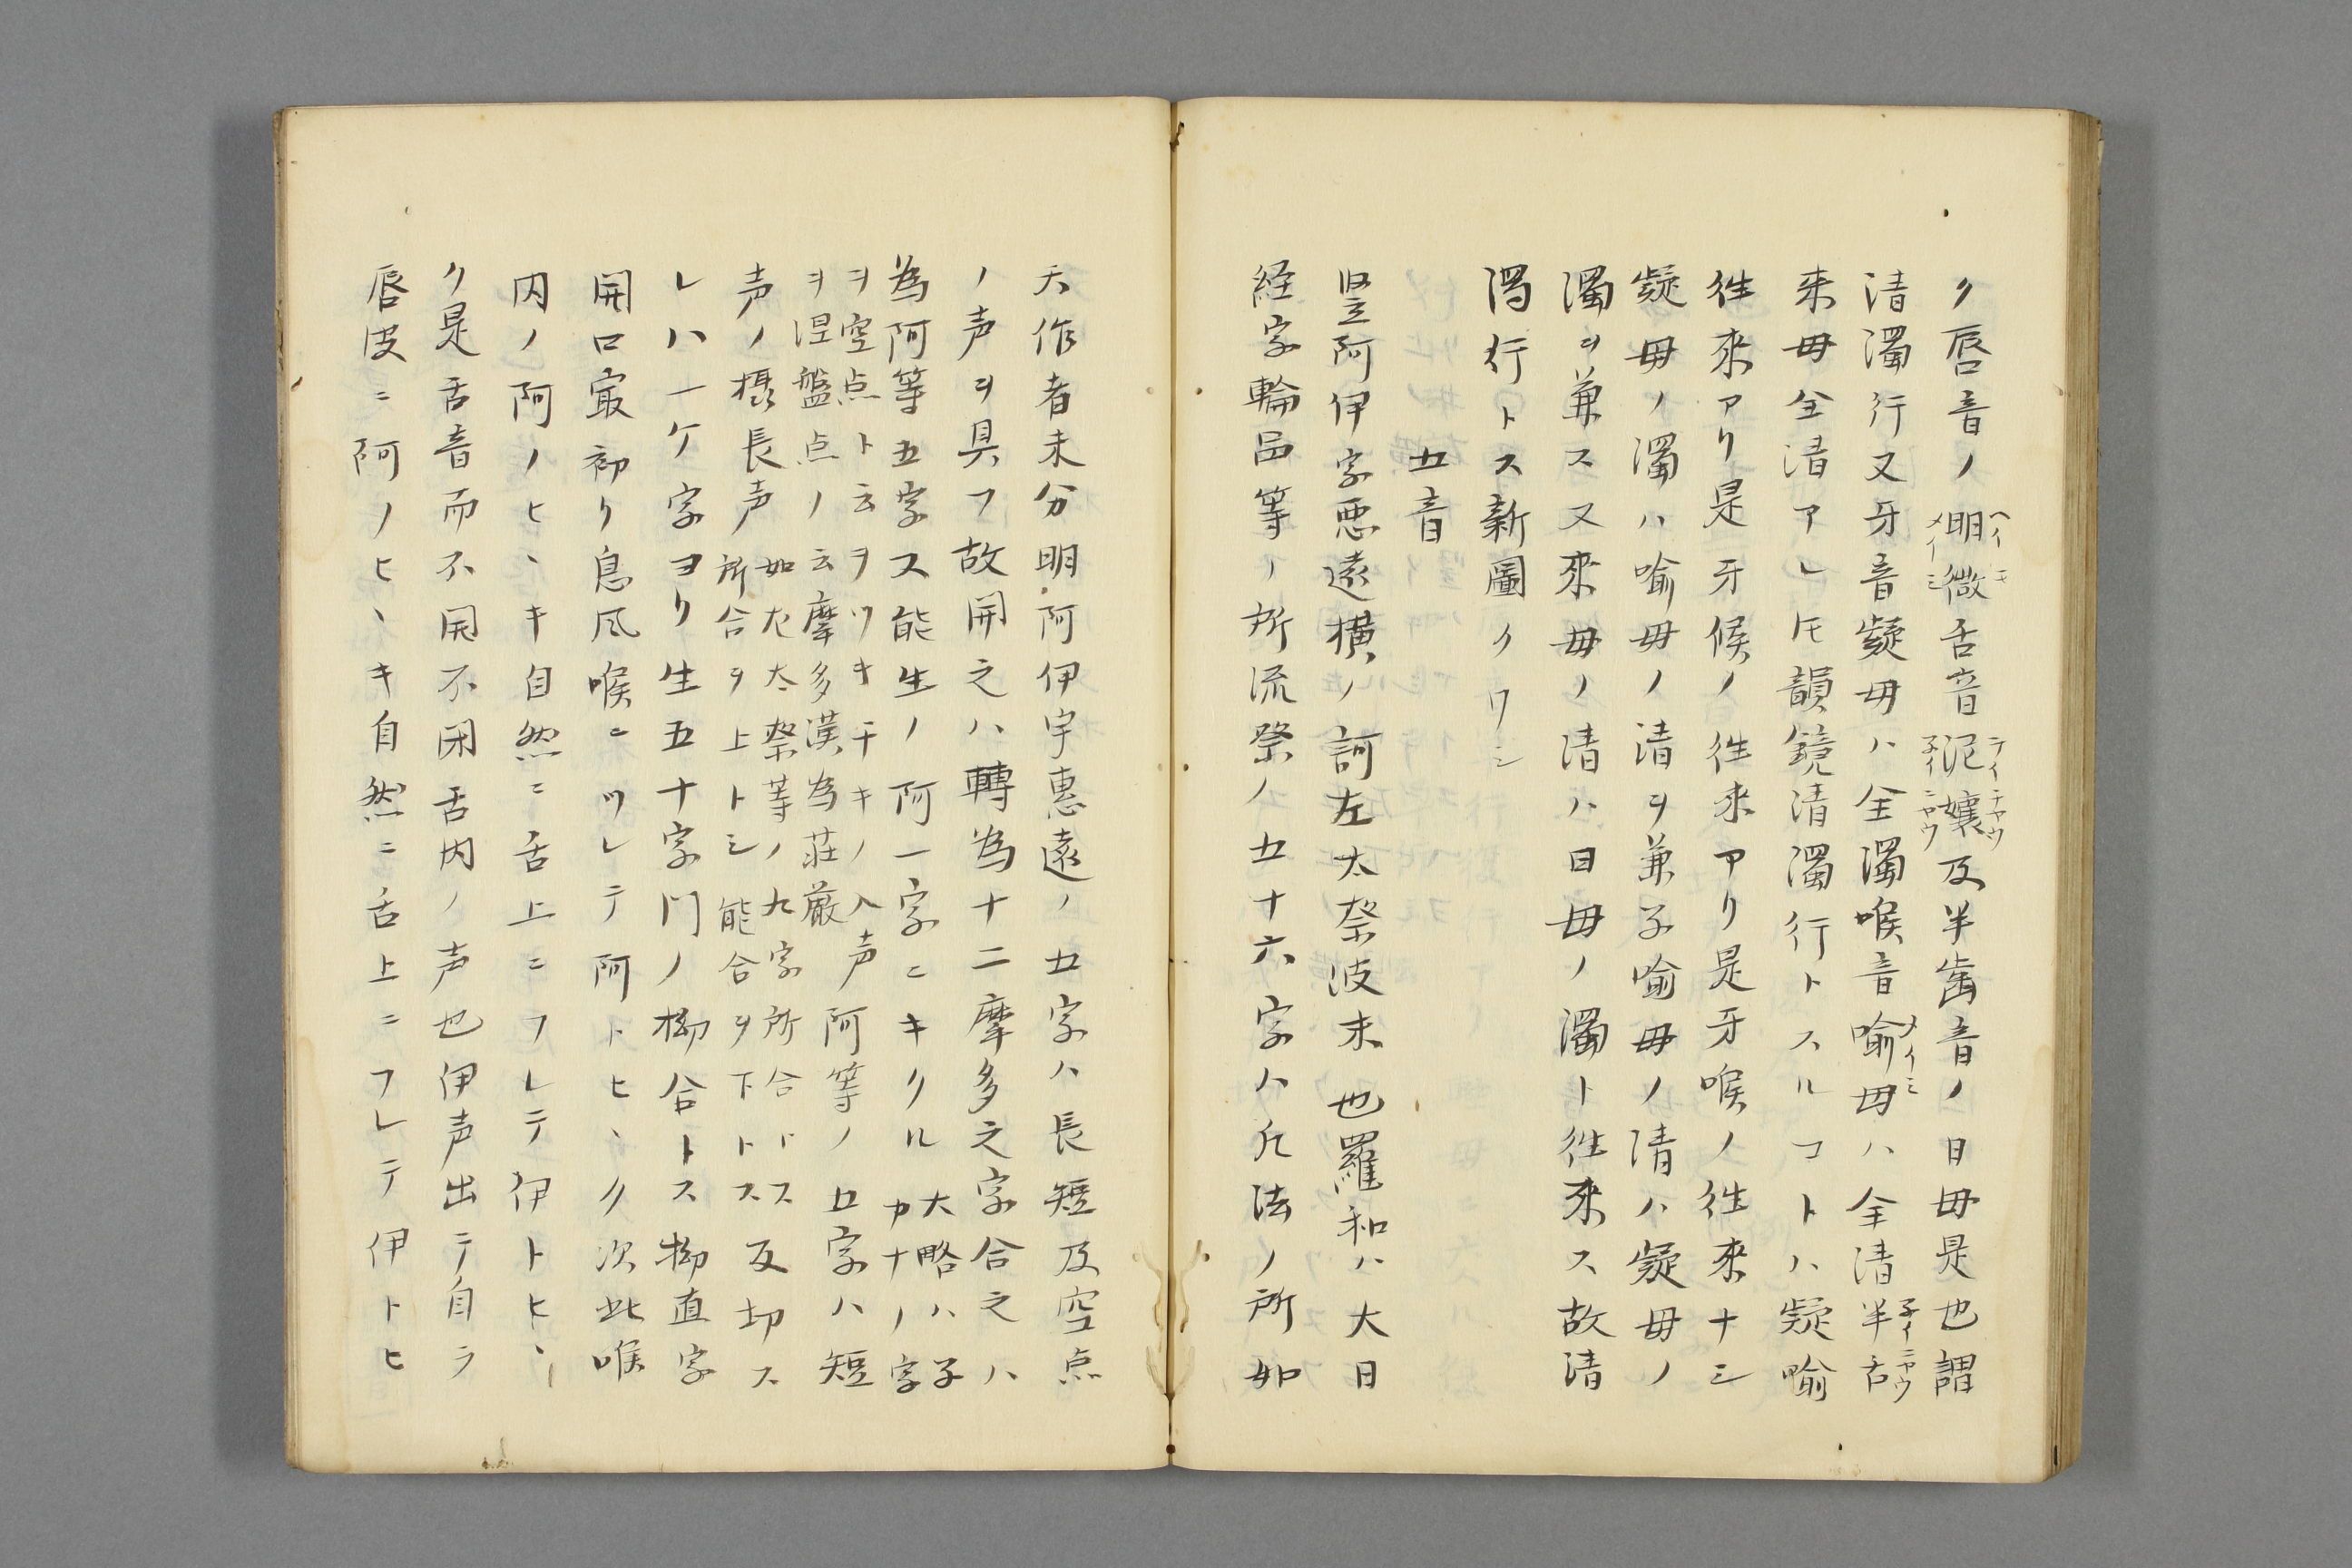 ク唇音ノ明微舌音泥孃及半歯音ノ日毋是也謂
清濁行又牙音疑毋ハ全濁喉音喩毋ハ全清半舌
来毋全清アレ𪜈韻鏡清濁行トスルコトハ疑喩
往來アリ是牙候ノ往来アリ是牙喉ノ往来ナシ
疑毋ノ濁ハ喩毋ノ清ヲ兼子喩毋ノ清ハ疑毋ノ
濁ヲ兼ス又來毋ノ清ハ日毋ノ濁ト往來ス故清
濁行トス新圖クワシ
五音
竪阿伊字悪遠横ノ訶左太奈波末也羅和ハ大日
経字輪品等ノ所流祭ノ五十六字ハ凡法ノ所如
天作者未分明阿伊宇惠遠ノ五字ハ長短及空点
ノ声ヲ具フ故開之ハ轉為十二摩多之字合之ハ
為阿等五字ス能生ノ阿一字ニキクル大略ハ子
カナノ字
ヲ空点ト云ヲツキ干キノ入声
ヲ涅盤点ノ云摩多漢為荘厳
阿等ノ五字ハ短
声ノ摂長声
如左太祭等ノ九字所合トス
所合ヲ上トシ能合ヲ下トス
反切ス
レハ一ケ字ヨリ生五十字門ノ拗合トス拗直字
開口㝡初り息风喉ニツレテ阿トヒヽク次此喉
内ノ阿ノヒヽキ自然ニ舌上ニフレテ伊トヒヽ
ク是舌音而不開不閉舌内ノ声也伊声出テ自ラ
唇皮ニ阿ノヒヽキ自然ニ舌上ニフレテ伊トヒ